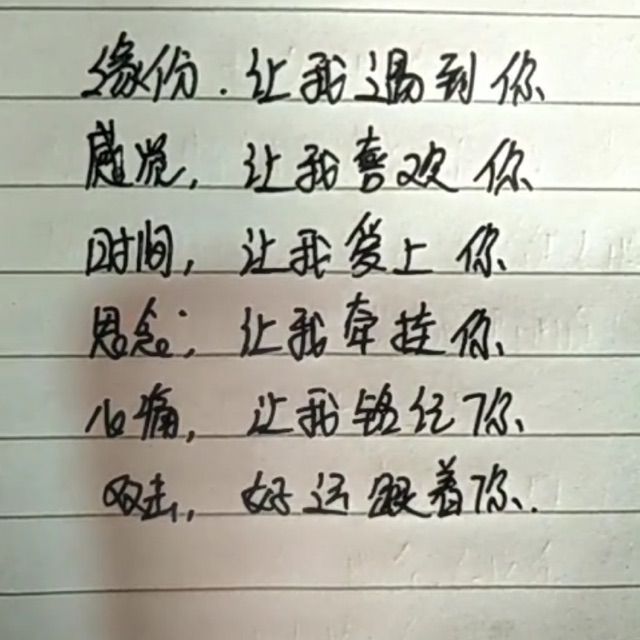 缘份.让我遇到你
感觉,让我喜欢你
时间,让我爱上你
思念,让我牵挂你
心痛,让我铭记你
双击,好运跟着你.